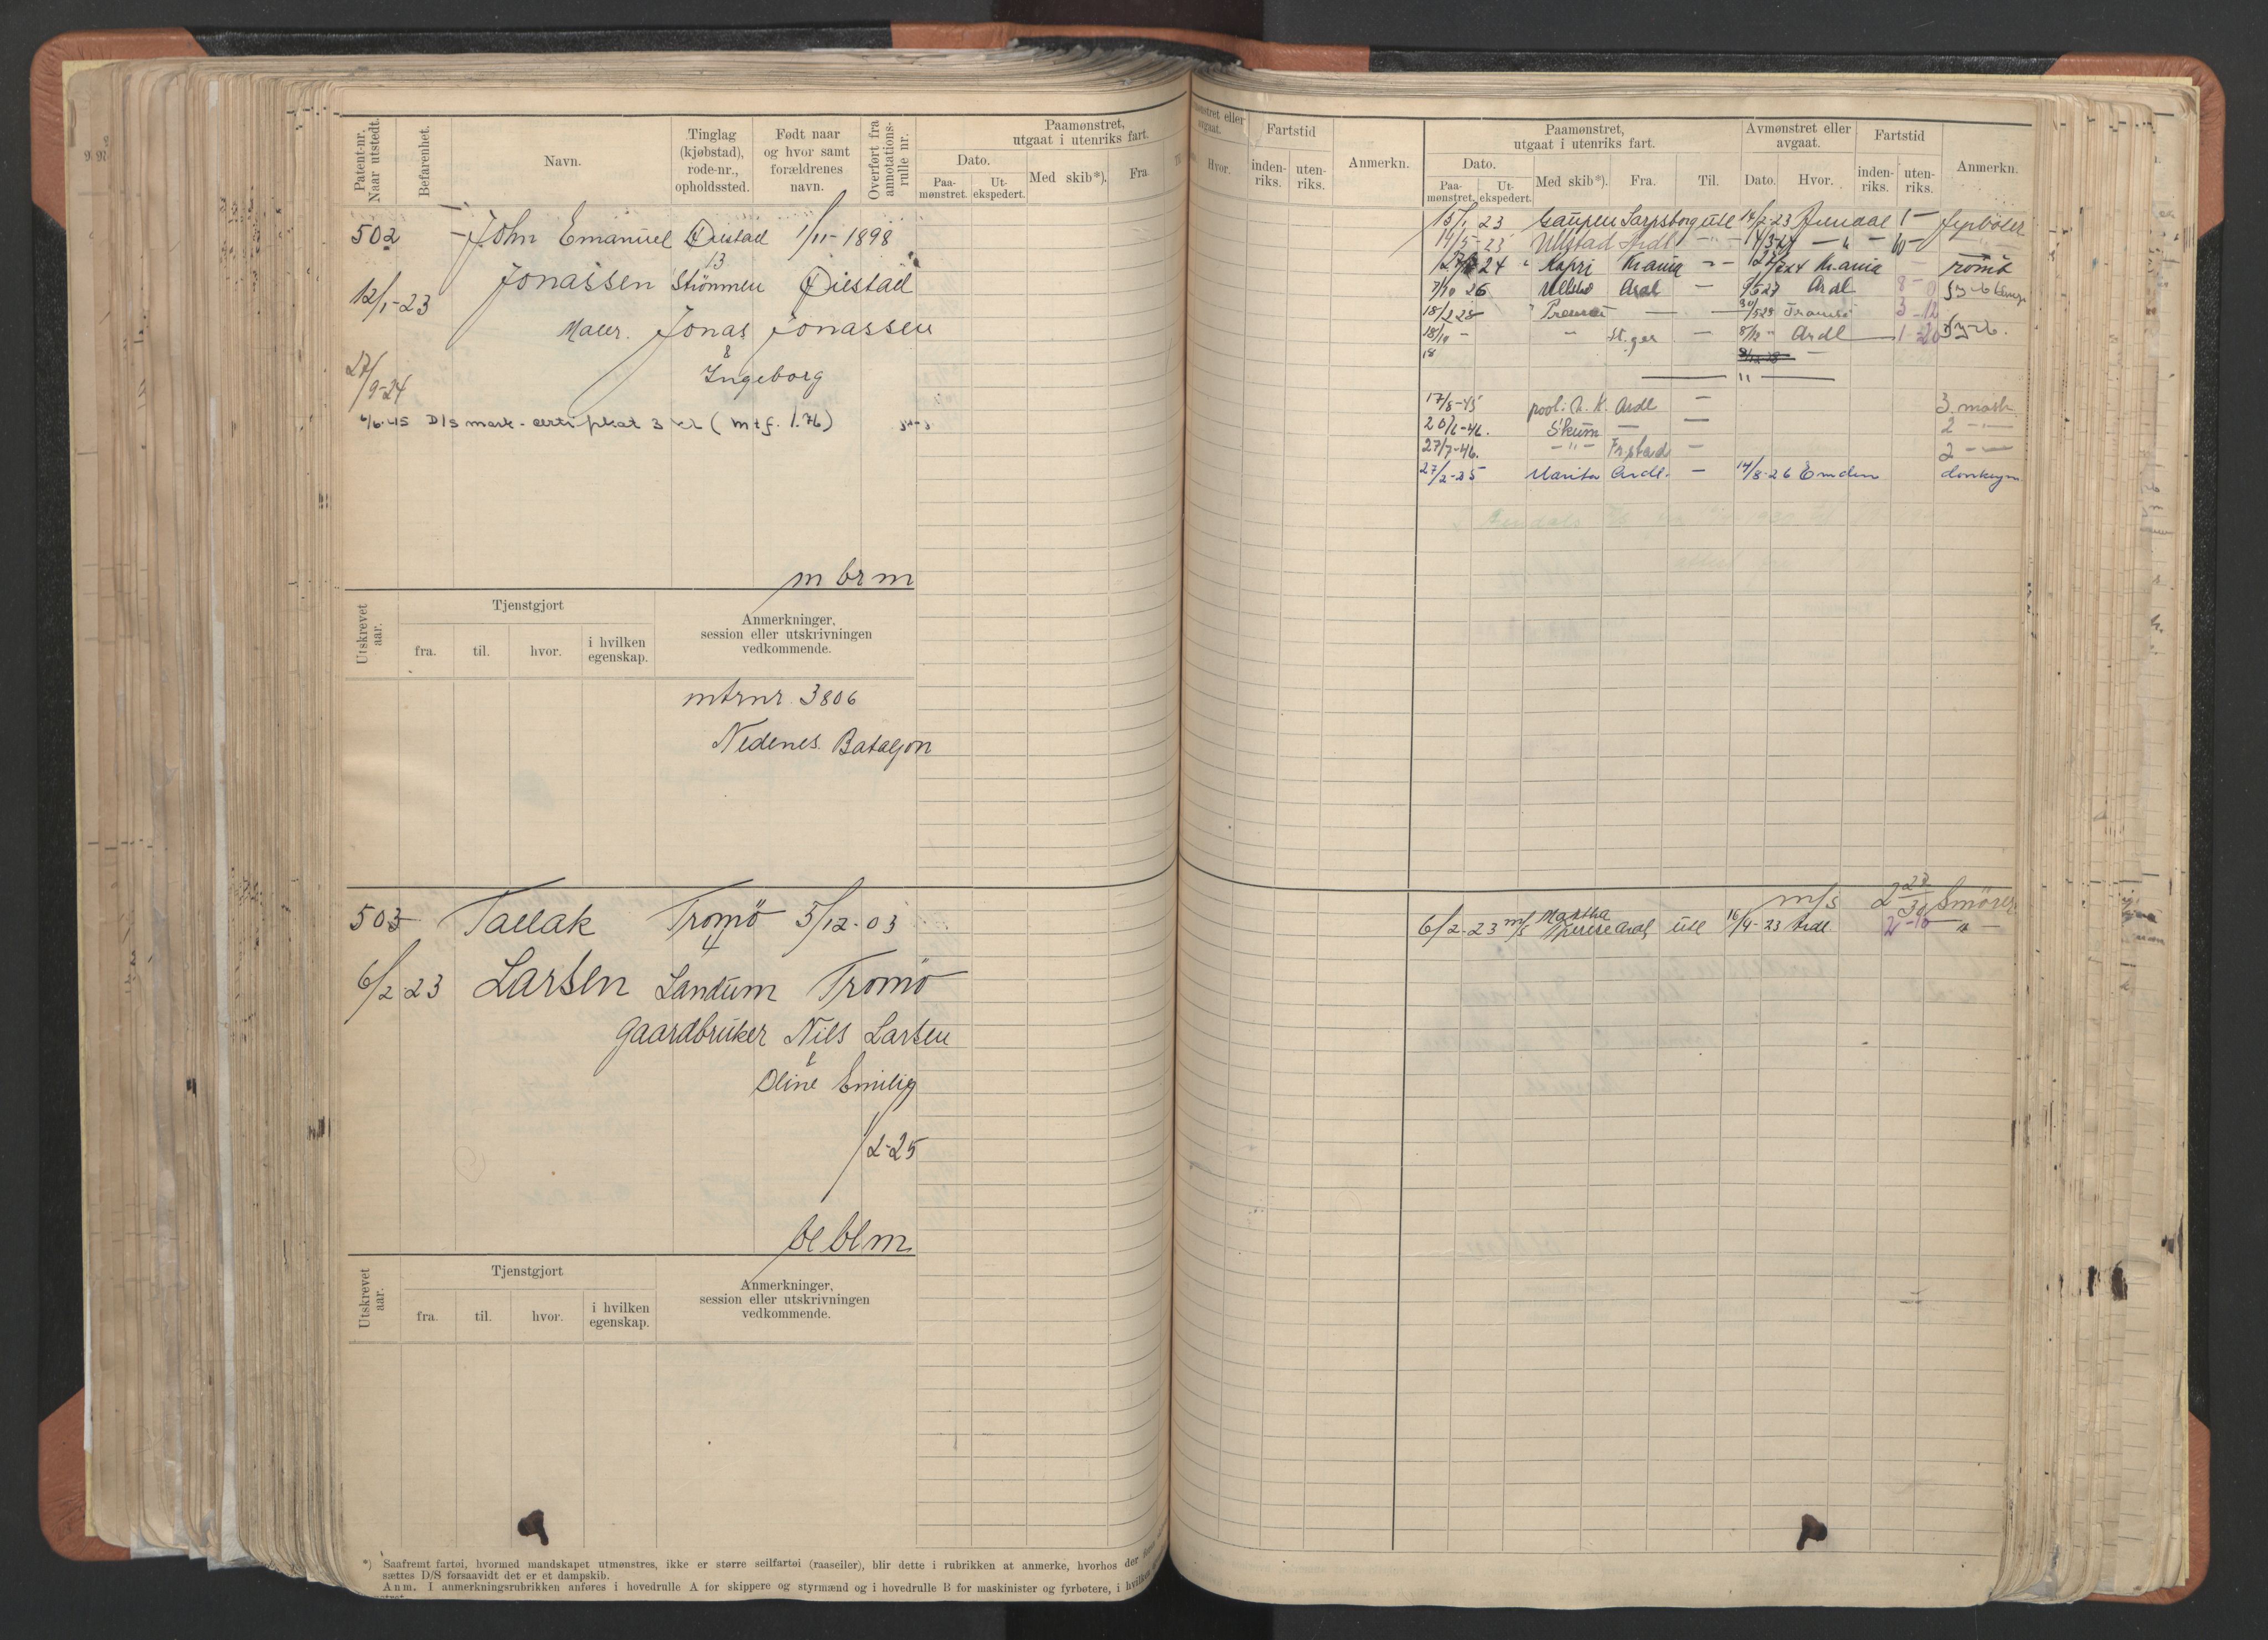 Patent-nr. Naar utstedt.
Befarenhet.
Navn.
Tinglag (kjøbstad), rode-nr., opholdssted.
Født naar og hvor samt forældrenes navn.
Overført fra annotations-rulle nr.
Paamønstret, utgaat i utenriks fart.
Dato.
Paa-mønstret.
Ut-ekspedert.
Med skib*).
Fra.
502 John Emanuel Øiestad 1/11-1898
13
12/1-23 Jonassen Strømmen Øiestad
Maler. Jonas Jonassen
&
27/9-24 Ingeborg
6/6-45 D/S mask-certifikat 3 kl (mtf. 1.76)
m br m
Utskrevet aar.
Tjenstgjort
fra.
til.
hvor.
i hvilken egenskap.
Anmerkninger, session eller utskrivningen vedkommende.
mtrnr. 3806
Nedenes Bataljon
503 Tallak Tromö 5/12-03
4
6/2-23 Larsen Sandum Tromö
Gaardbruker Nils Larsen
&
Oline Emilie
1/2-25
bl bl m
Utskrevet aar.
Tjenstgjort
fra.
til.
hvor.
i hvilken egenskap.
Anmerkninger, session eller utskrivningen vedkommende.
*) Saafremt fartøi, hvormed mandskapet utmønstres, ikke er større seilfartøi (raaseiler), blir dette i rubrikken at anmerke, hvorhos der
sættes D/S forsaavidt det er et dampskib.
Anm. I anmerkningsrubrikken anføres i hovedrulle A for skippere og styrmænd og i hovedrulle B for maskinister og fyrbøtere, i
Hvor.
Fartstid
inden-riks.
uten-riks.
Anmerkn.
Paamønstret, utgaat i utenriks fart.
Dato.
Paa-mønstret.
Ut-ekspedert.
Med skib*).
Fra.
Til.
Avmønstret eller avgaat.
Dato.
Hvor.
Fartstid
inden-riks.
uten-riks.
Anmerkn.
15/1 23 Gaupen Sarpsborg utl 14/2-23 Arendal 1 - fyrböter
14/5-23 Ullstad Ardl - " - 14/3-24 - " - 10 -
24 Kapri Krania - " - Krania
7/10 26 Ardl - 9/5 27 Ardl 8 -
18/2 28 - 3-12
18/10 - " - 8/12 " Ardl 1-20 fyrb.
- " -
17/8-45 pool: Ardl - 3 mask
20/6-46. Skum - - 2 - " -
27/7-46. - " - Frstad - 2 - " -
27/2-25 Marita Ardl. - 14/8-26 Emden donkeym
m/s 2 23/30 Smörer
6/2-23 m/s Martha Ardl utl 16/4-23 Ardl 2-10 - " -